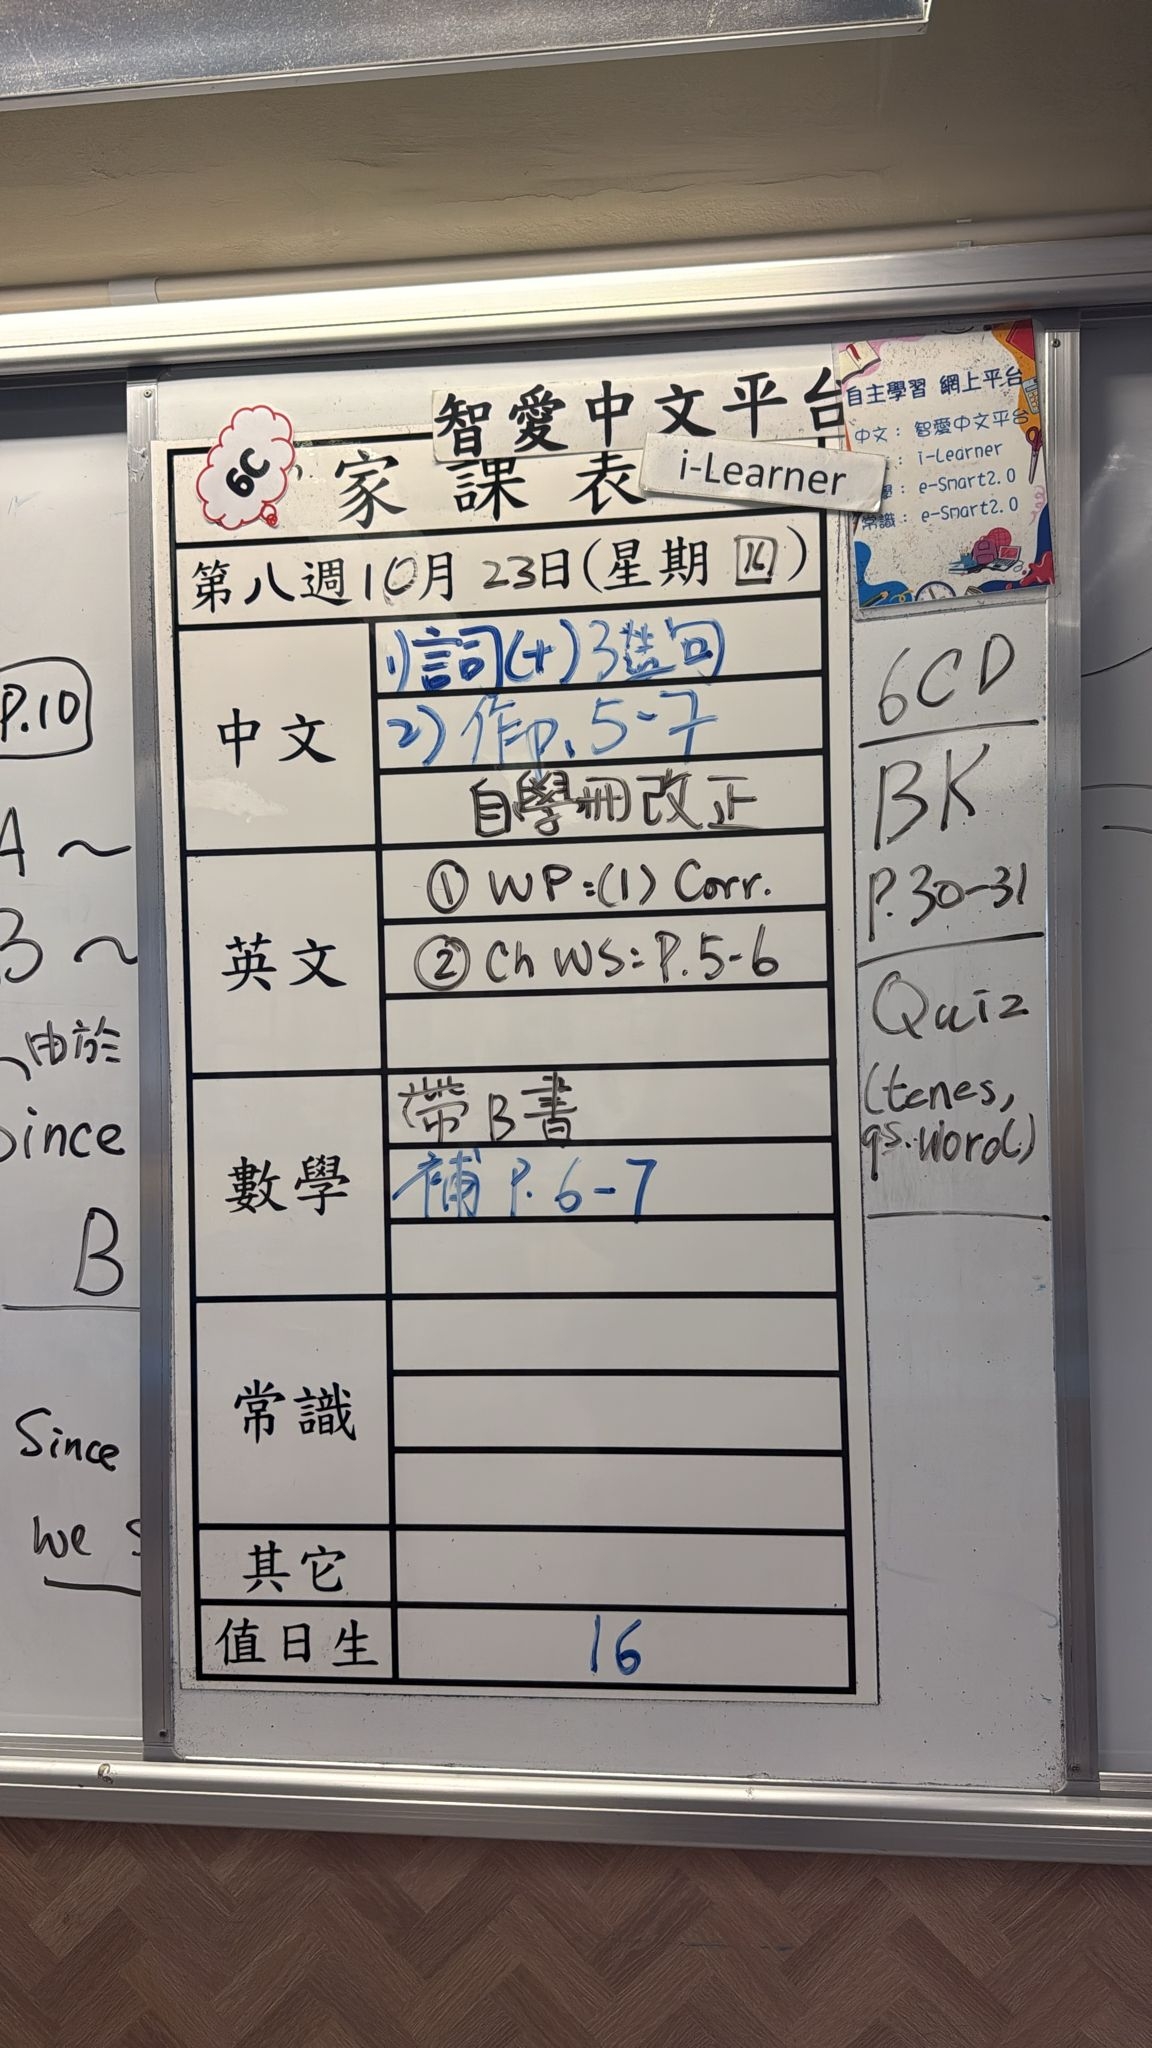 智愛中文平台
6C
家課表
i-Learner
自主學習 網上平台
中文：智愛中文平台
： i-Learner
學： e-Smart2.0
常識： e-Smart2.0
第八週10月23日(星期四)
中文
1)詞(十)3造句
2)作p.5-7
自學冊改正
英文
① WP:(1) Corr.
② Ch WS: P.5-6
數學
帶B書
補 P.6-7
常識
其它
值日生
16
6CD
BK
P.30-31
Quiz
(tenes,
qs.word.)
P.10
A ~
B ~
由於
Since
B
Since
we